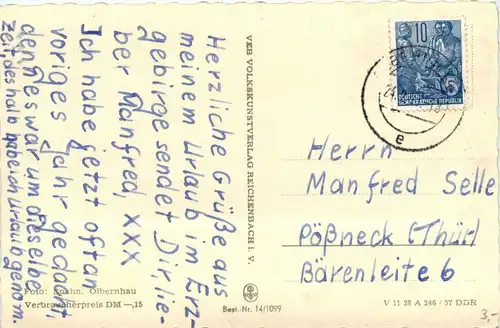 Herzliche Grüße aus
meinem Urlaub im Erz-
gebirge sendet Dir, lie-
ber Manfred, XXX
Ich habe jetzt oft an
voriges Jahr gedacht,
denn es war um dieselbe
Zeit, deshalb habe ich Urlaub genom.
Foto: Olbernhau
Verbraucherpreis DM —,15
VEB VOLKSKUNSTVERLAG REICHENBACH I. V.
Best.-Nr. 14/1099
10
5
DEUTSCHE
DEMOKRATISCHE REPUBLIK
e
Herrn
Manfred Selle
Pößneck (Thür)
Bärenleite 6
V 11 28 A 246 / 57 DDR
3,-